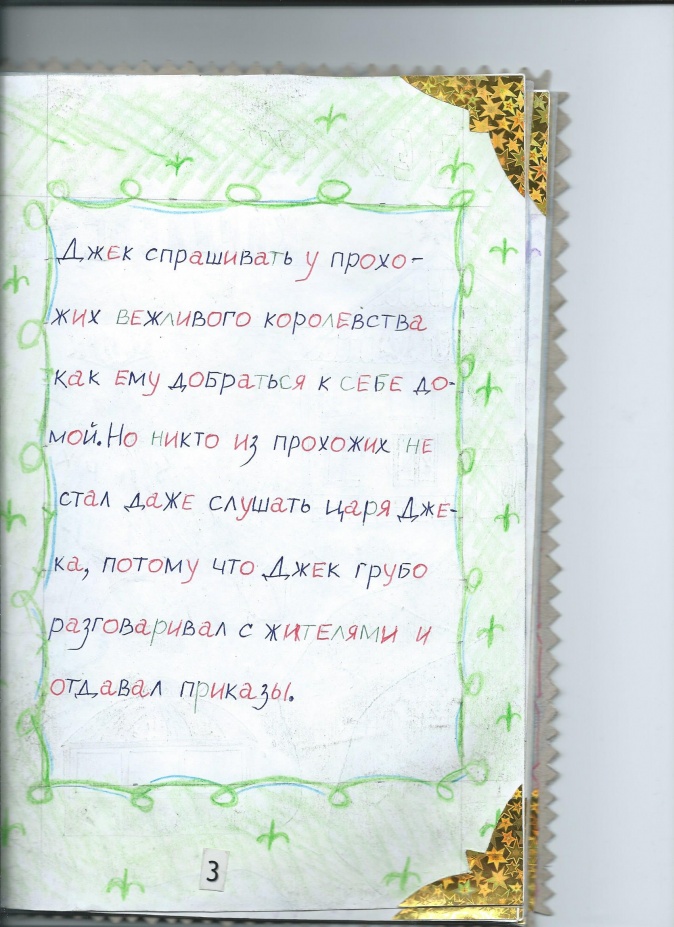 Джек спрашивать у прохо-
жих вежливого королевства
как ему добраться к себе до-
мой. Но никто из прохожих не
стал даже слушать царя Дже-
ка, потому что Джек грубо
разговаривал с жителями и
отдавал приказы.
3